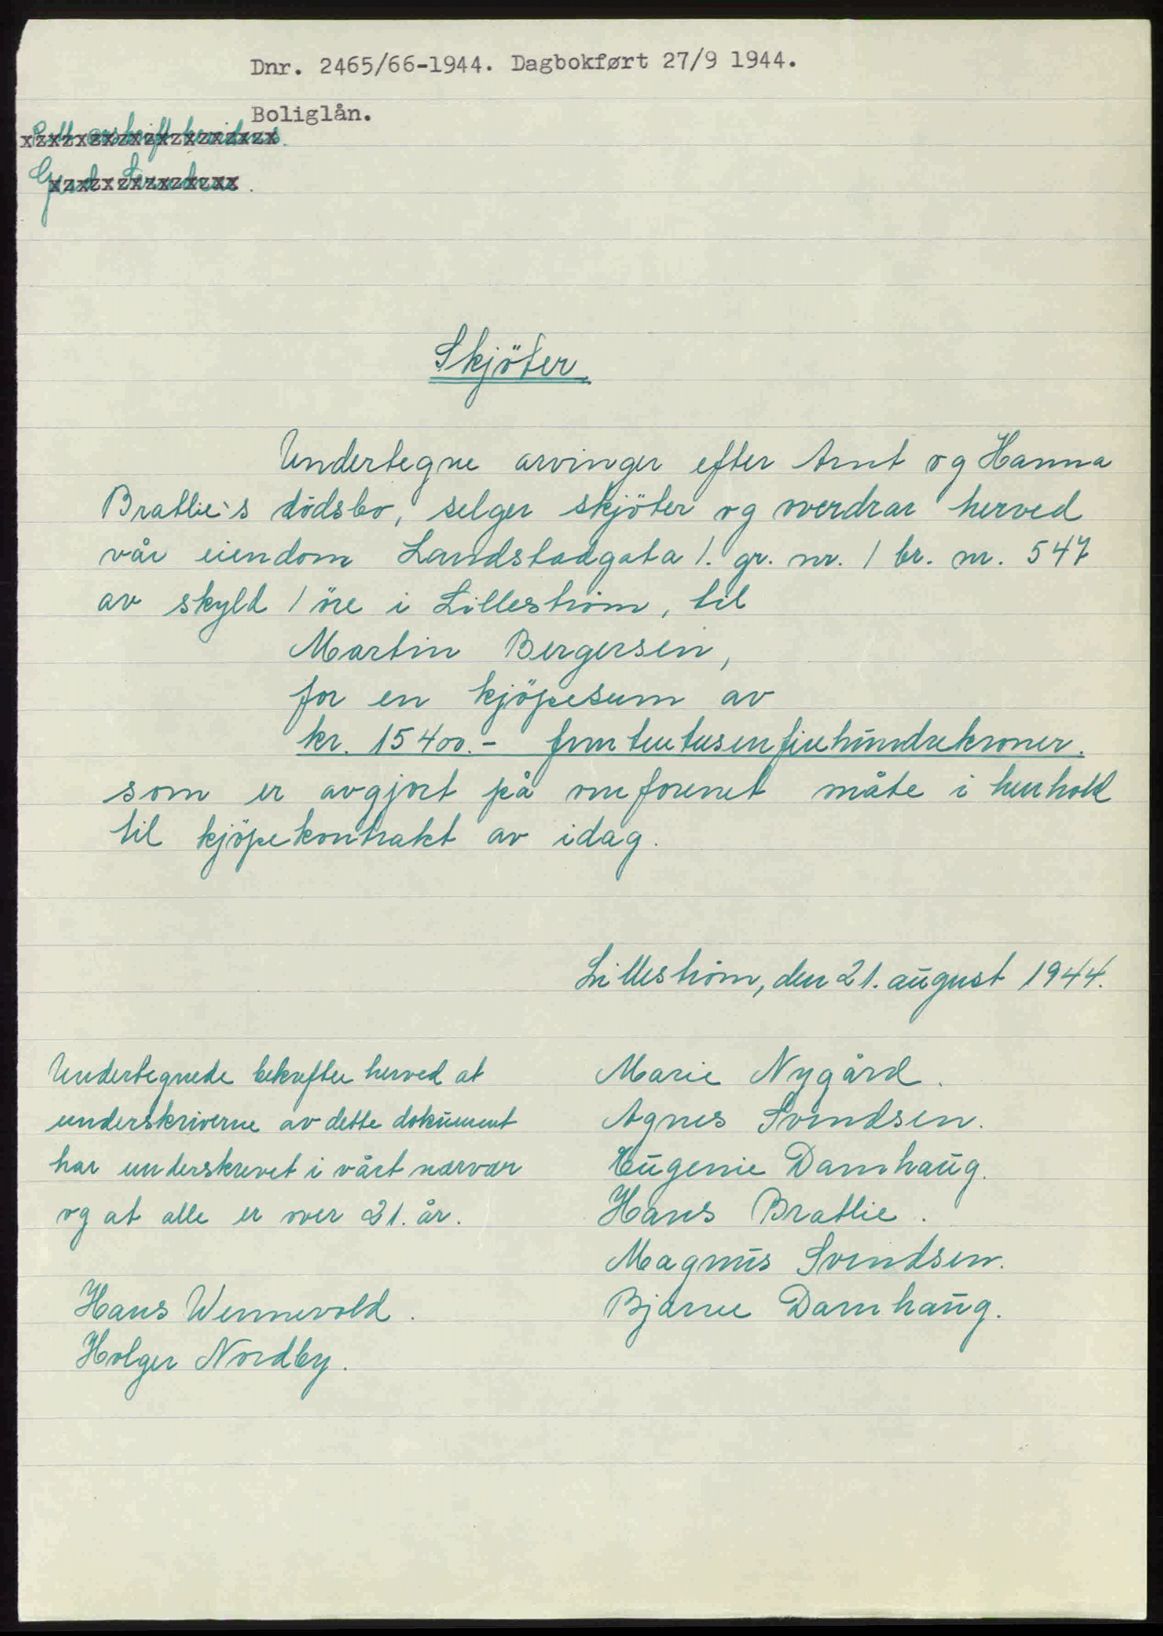 Dnr. 2465/66-1944. Dagbokført 27/9 1944.
Boliglån.
Skjöter
Undertegne arvinger efter Arnt og Hanna
Bratlie's dödsbo, selger skjöter og overdrar herved
vår eiendom Landstadgata 1. gr. nr. 1 br. nr. 547
av skyld 1 öre i Lilleström, til
Martin Bergersen,
for en kjöpesum av
kr. 15400.- femtentusenfirehundrekroner.
som er avgjort på omforenet måte i henhold
til kjöpekontrakt av idag.
Lilleström, den 21. august 1944.
Undertegnede bekrefter herved at
underskriverne av dette dokument
har underskrevet i vårt nærvær
og at alle er over 21. år.
Hans Wennevold.
Holger Nordby.
Marie Nygård.
Agnes Svendsen.
Eugenie Damhaug.
Hans Bratlie.
Magnus Svendsen.
Bjarne Damhaug.